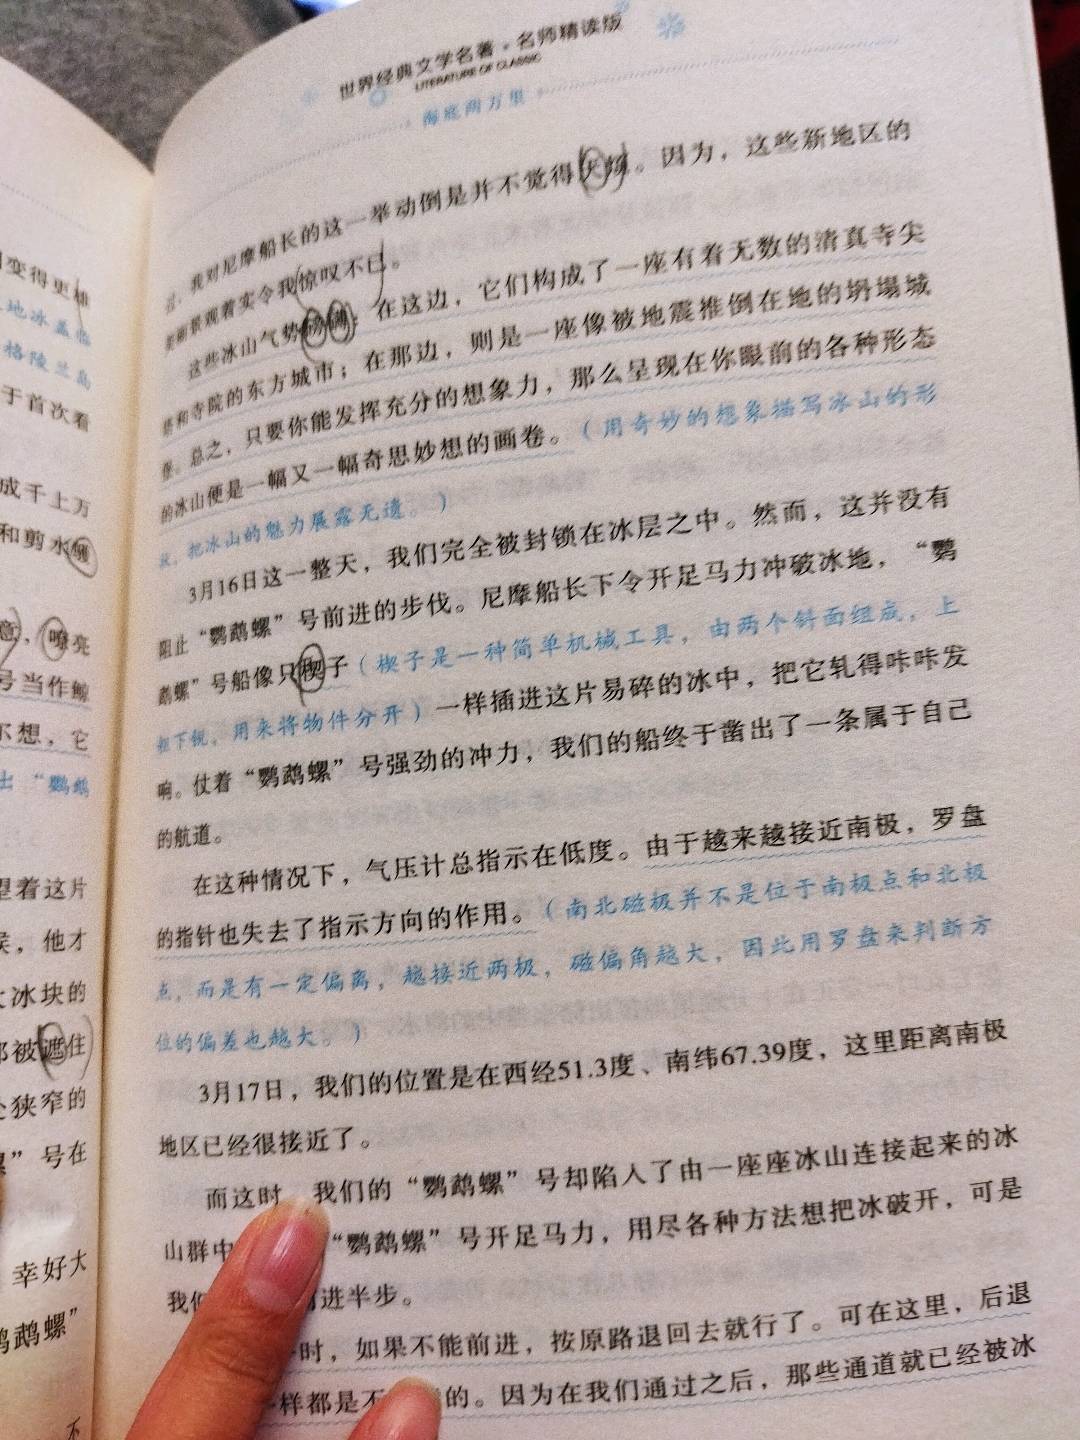 变得更雄
地冰盖临
格陵兰岛
于首次看
成千上万
和剪水鹱
意，嘹亮
号当作鲸
不想，它
出“鹦鹉
望着这片
候，他才
大冰块的
都被遮住
处狭窄的
螺”号在
幸好大
鹉鹉螺”
不
世界经典文学名著·名师精读版
LITERATURE OF CLASSIC
海底两万里
过，我对尼摩船长的这一举动倒是并不觉得厌烦。因为，这些新地区的
美丽景观着实令我惊叹不已。
这些冰山气势磅礴，在这边，它们构成了一座有着无数的清真寺尖
塔和寺院的东方城市；在那边，则是一座像被地震推倒在地的坍塌城
张。总之，只要你能发挥充分的想象力，那么呈现在你眼前的各种形态
的冰山便是一幅又一幅奇思妙想的画卷。（用奇妙的想象描写冰山的形
状，把冰山的魅力展露无遗。）
3月16日这一整天，我们完全被封锁在冰层之中。然而，这并没有
阻止“鹦鹉螺”号前进的步伐。尼摩船长下令开足马力冲破冰地，“鹦
鹉螺”号船像只楔子（楔子是一种简单机械工具，由两个斜面组成，上
粗下锐，用来将物件分开）一样插进这片易碎的冰中，把它轧得咔咔发
响。仗着“鹦鹉螺”号强劲的冲力，我们的船终于凿出了一条属于自己
的航道。
在这种情况下，气压计总指示在低度。由于越来越接近南极，罗盘
的指针也失去了指示方向的作用。（南北磁极并不是位于南极点和北极
点，而是有一定偏离，越接近两极，磁偏角越大，因此用罗盘来判断方
位的偏差也越大。）
3月17日，我们的位置是在西经51.3度、南纬67.39度，这里距离南极
地区已经很接近了。
而这时，我们的“鹦鹉螺”号却陷入了由一座座冰山连接起来的冰
山群中 “鹦鹉螺”号开足马力，用尽各种方法想把冰破开，可是
我们 前进半步。
时，如果不能前进，按原路退回去就行了。可在这里，后退
一样都是不 的。因为在我们通过之后，那些通道就已经被冰